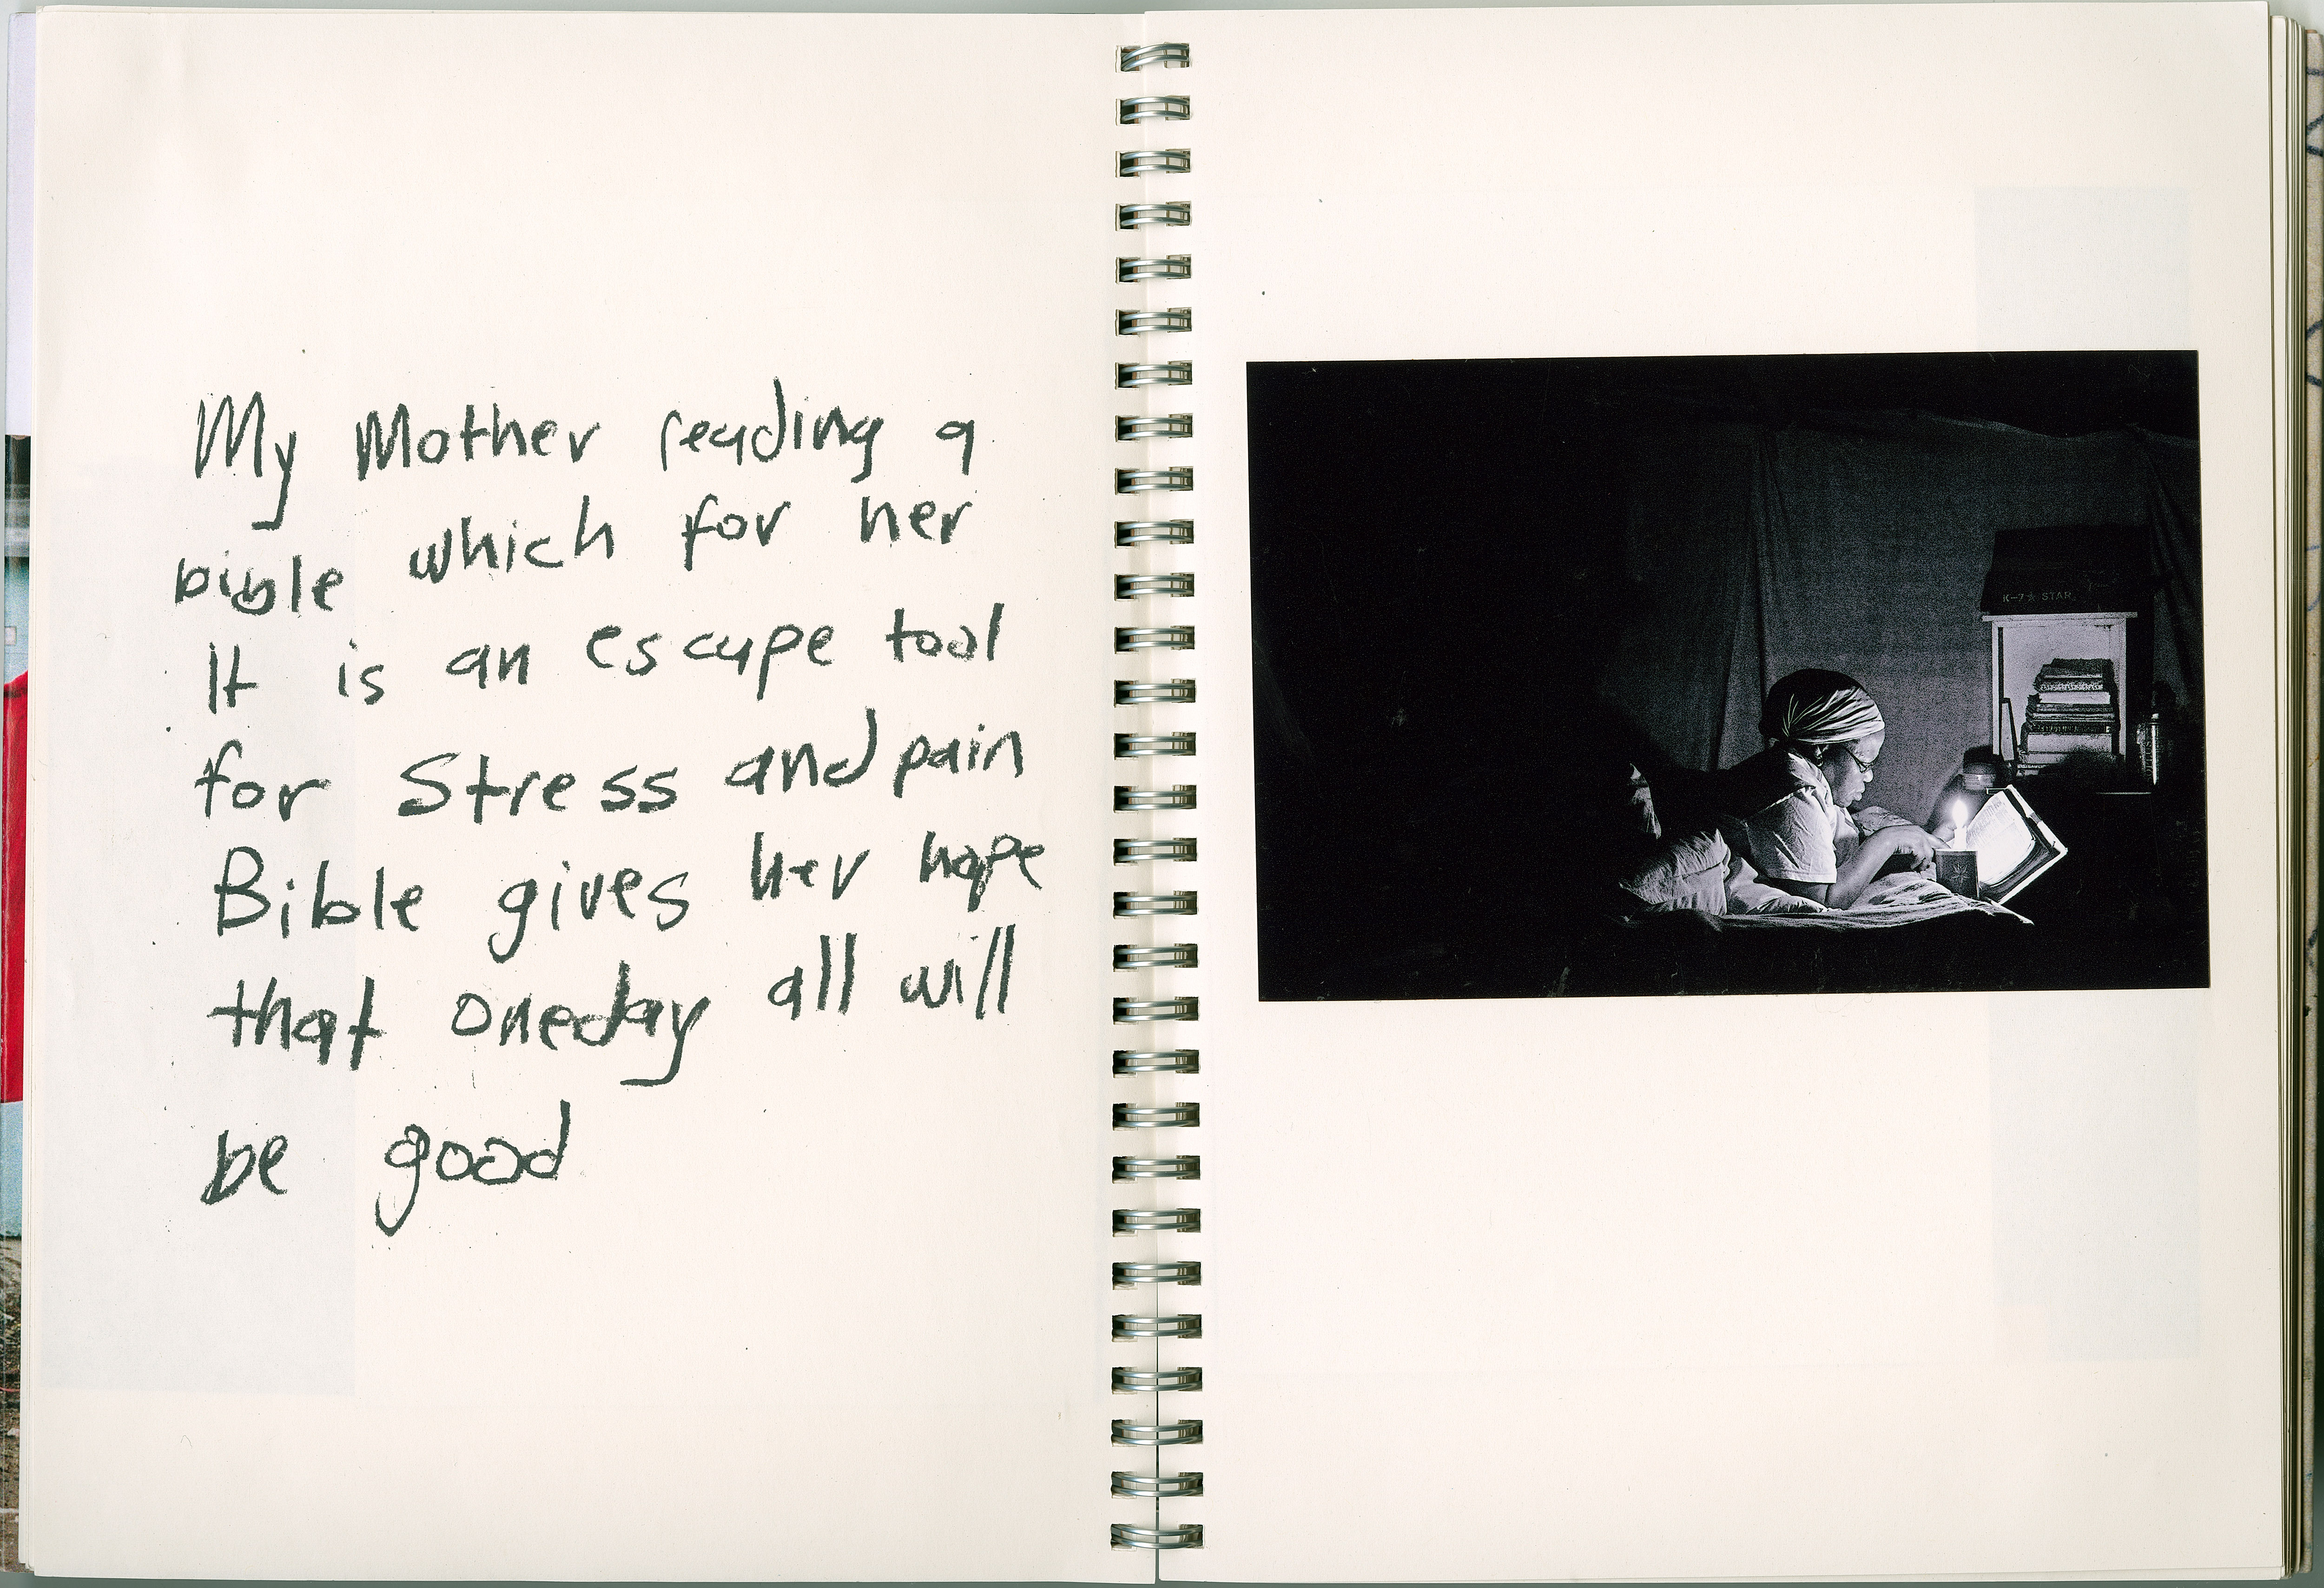 My Mother reading a
bible which for her
It is an escape tool
for Stress and pain
Bible gives her hope
that oneday all will
be good
K-7 STAR